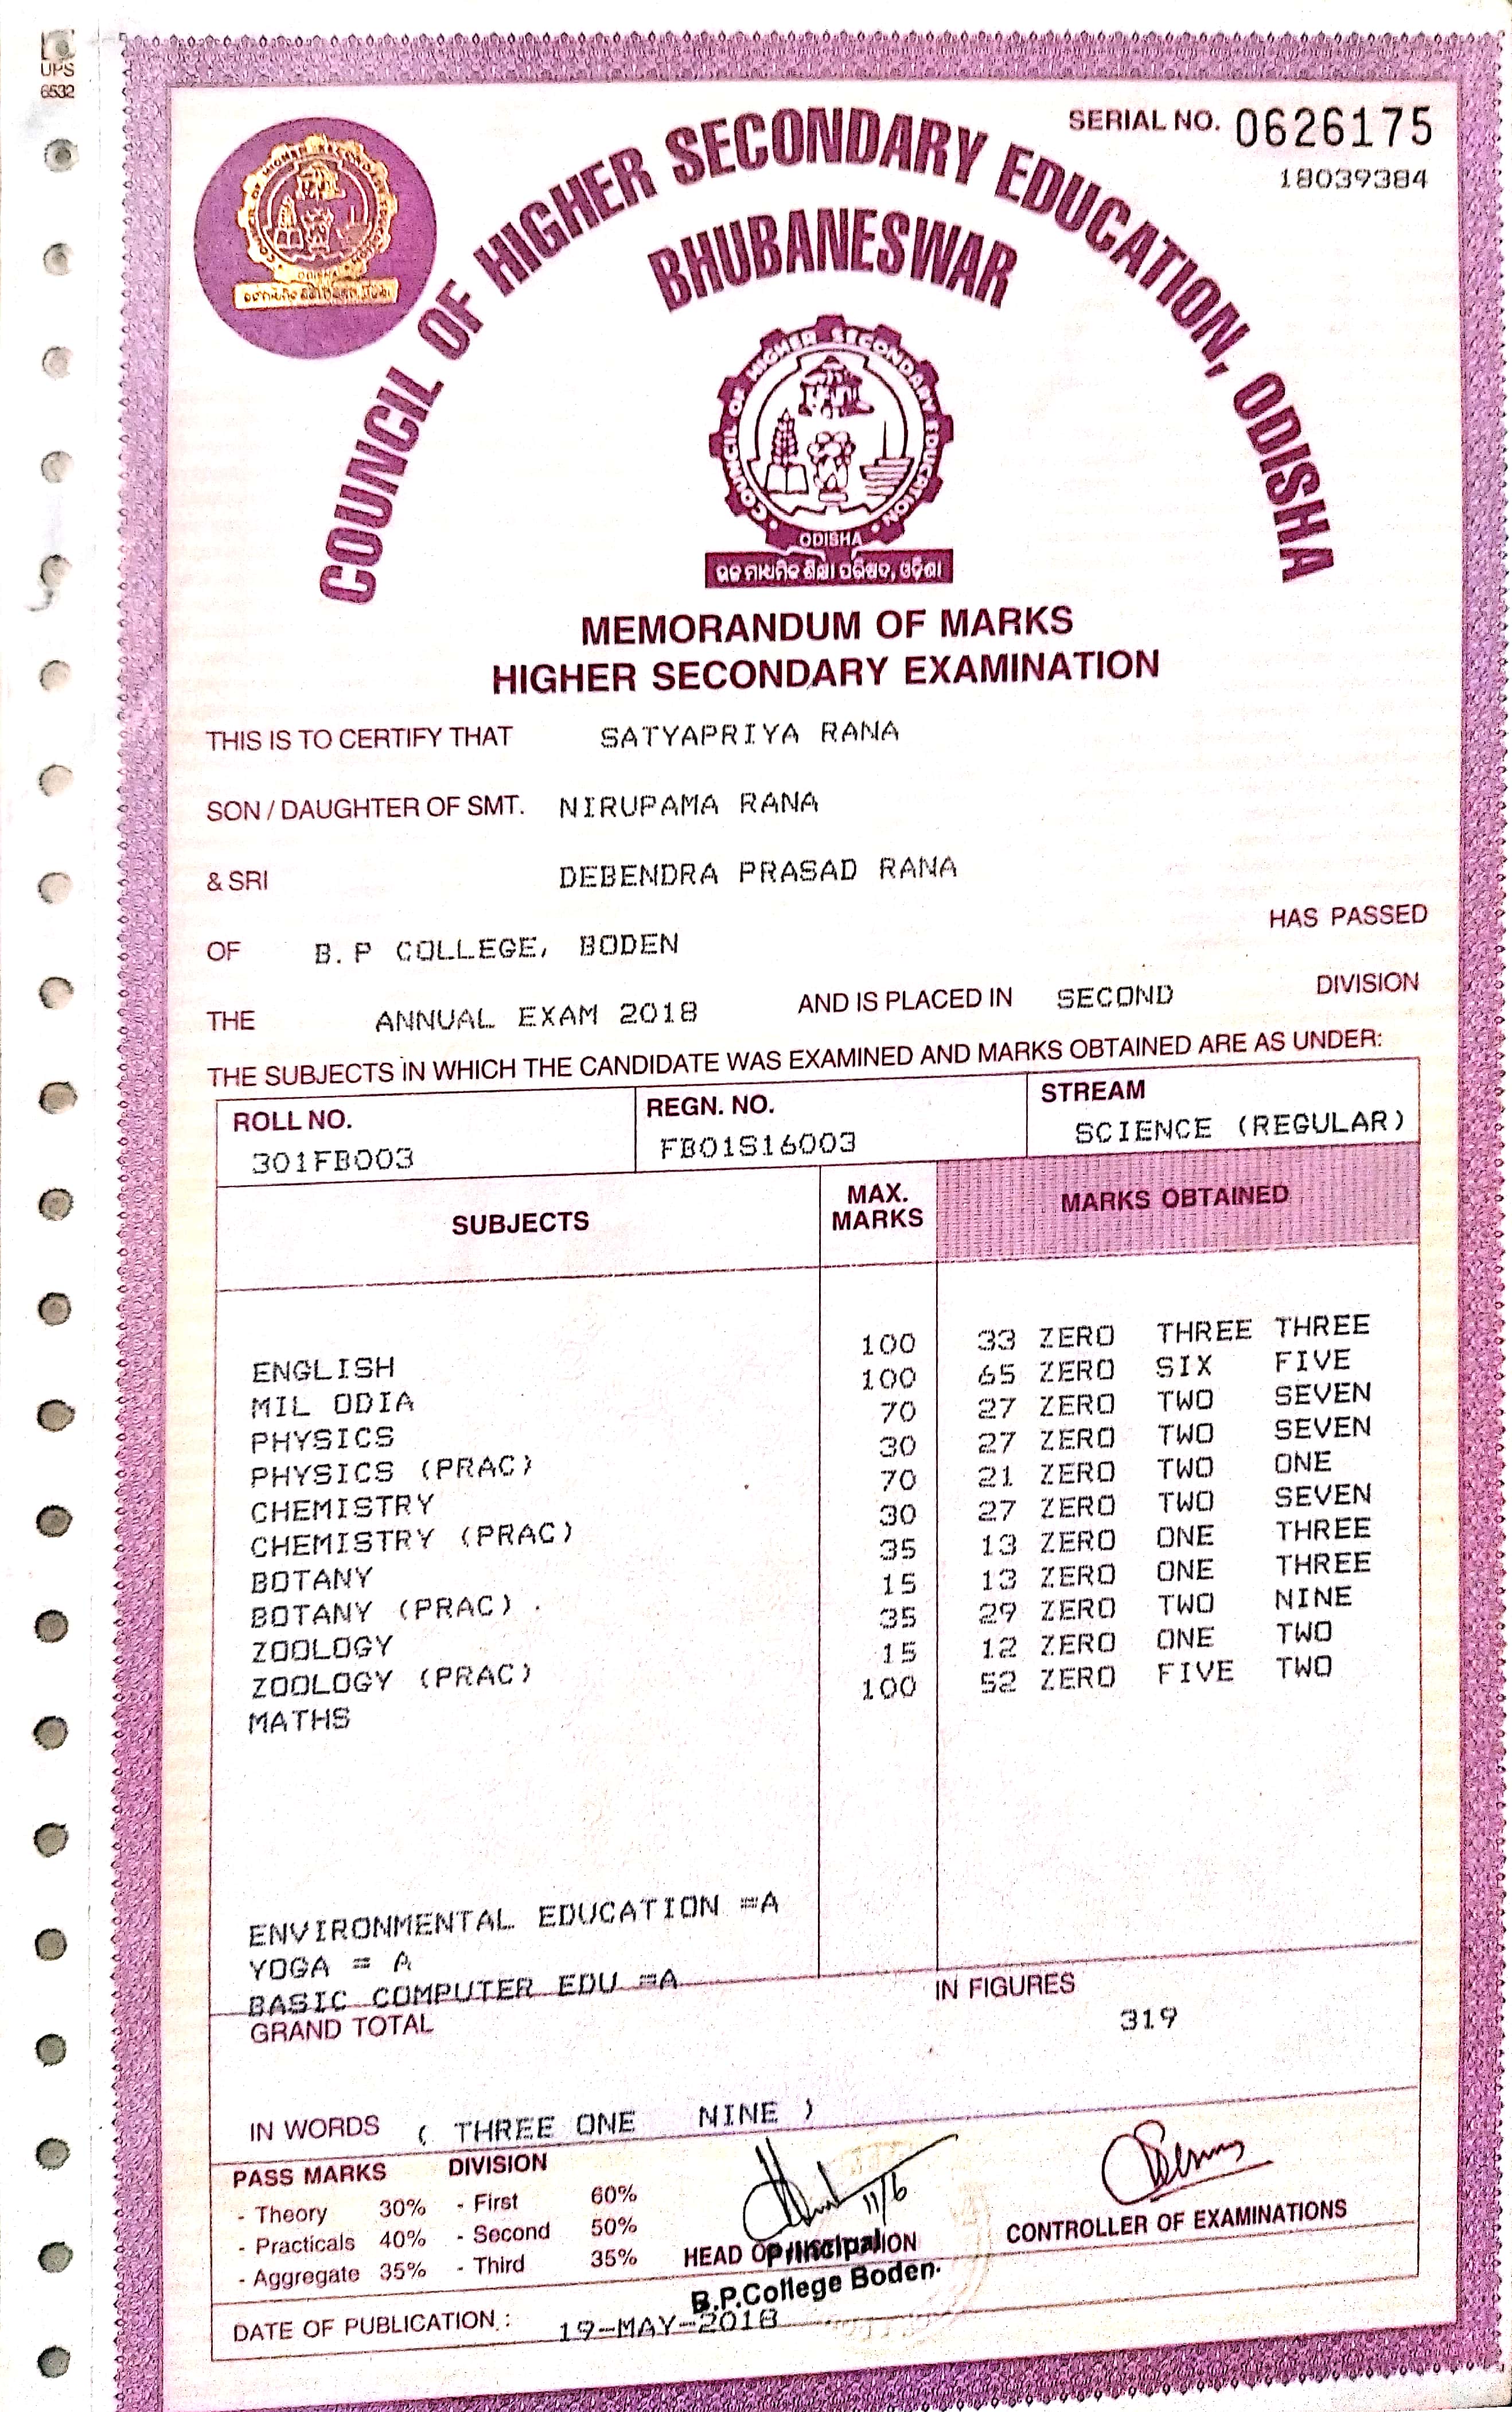 UPS
6532
SERIAL NO. 0626175
18039384
COUNCIL OF HIGHER SECONDARY EDUCATION, ODISHA
BHUBANESWAR
COUNCIL OF HIGHER SECONDARY EDUCATION
ODISHA
ଉଚ୍ଚ ମାଧ୍ୟମିକ ଶିକ୍ଷା ପରିଷଦ, ଓଡ଼ିଶା
MEMORANDUM OF MARKS
HIGHER SECONDARY EXAMINATION
THIS IS TO CERTIFY THAT SATYAPRIYA RANA
SON / DAUGHTER OF SMT. NIRUPAMA RANA
& SRI DEBENDRA PRASAD RANA
OF B.P COLLEGE, BODEN HAS PASSED
THE ANNUAL EXAM 2018 AND IS PLACED IN SECOND DIVISION
THE SUBJECTS IN WHICH THE CANDIDATE WAS EXAMINED AND MARKS OBTAINED ARE AS UNDER:
ROLL NO. REGN. NO. STREAM
301FB003 FB01S16003 SCIENCE (REGULAR)
SUBJECTS MAX. MARKS MARKS OBTAINED
ENGLISH 100 33 ZERO THREE THREE
MIL ODIA 100 65 ZERO SIX FIVE
PHYSICS 70 27 ZERO TWO SEVEN
PHYSICS (PRAC) 30 27 ZERO TWO SEVEN
CHEMISTRY 70 21 ZERO TWO ONE
CHEMISTRY (PRAC) 30 27 ZERO TWO SEVEN
BOTANY 35 13 ZERO ONE THREE
BOTANY (PRAC) . 15 13 ZERO ONE THREE
ZOOLOGY 35 29 ZERO TWO NINE
ZOOLOGY (PRAC) 15 12 ZERO ONE TWO
MATHS 100 52 ZERO FIVE TWO
ENVIRONMENTAL EDUCATION =A
YOGA = A
BASIC COMPUTER EDU =A
GRAND TOTAL IN FIGURES 319
IN WORDS ( THREE ONE NINE )
PASS MARKS DIVISION
- Theory 30% - First 60%
- Practicals 40% - Second 50%
- Aggregate 35% - Third 35%
11/6
HEAD OF INSTITUTION
CONTROLLER OF EXAMINATIONS
Principal
B.P.College Boden.
DATE OF PUBLICATION : 19-MAY-2018